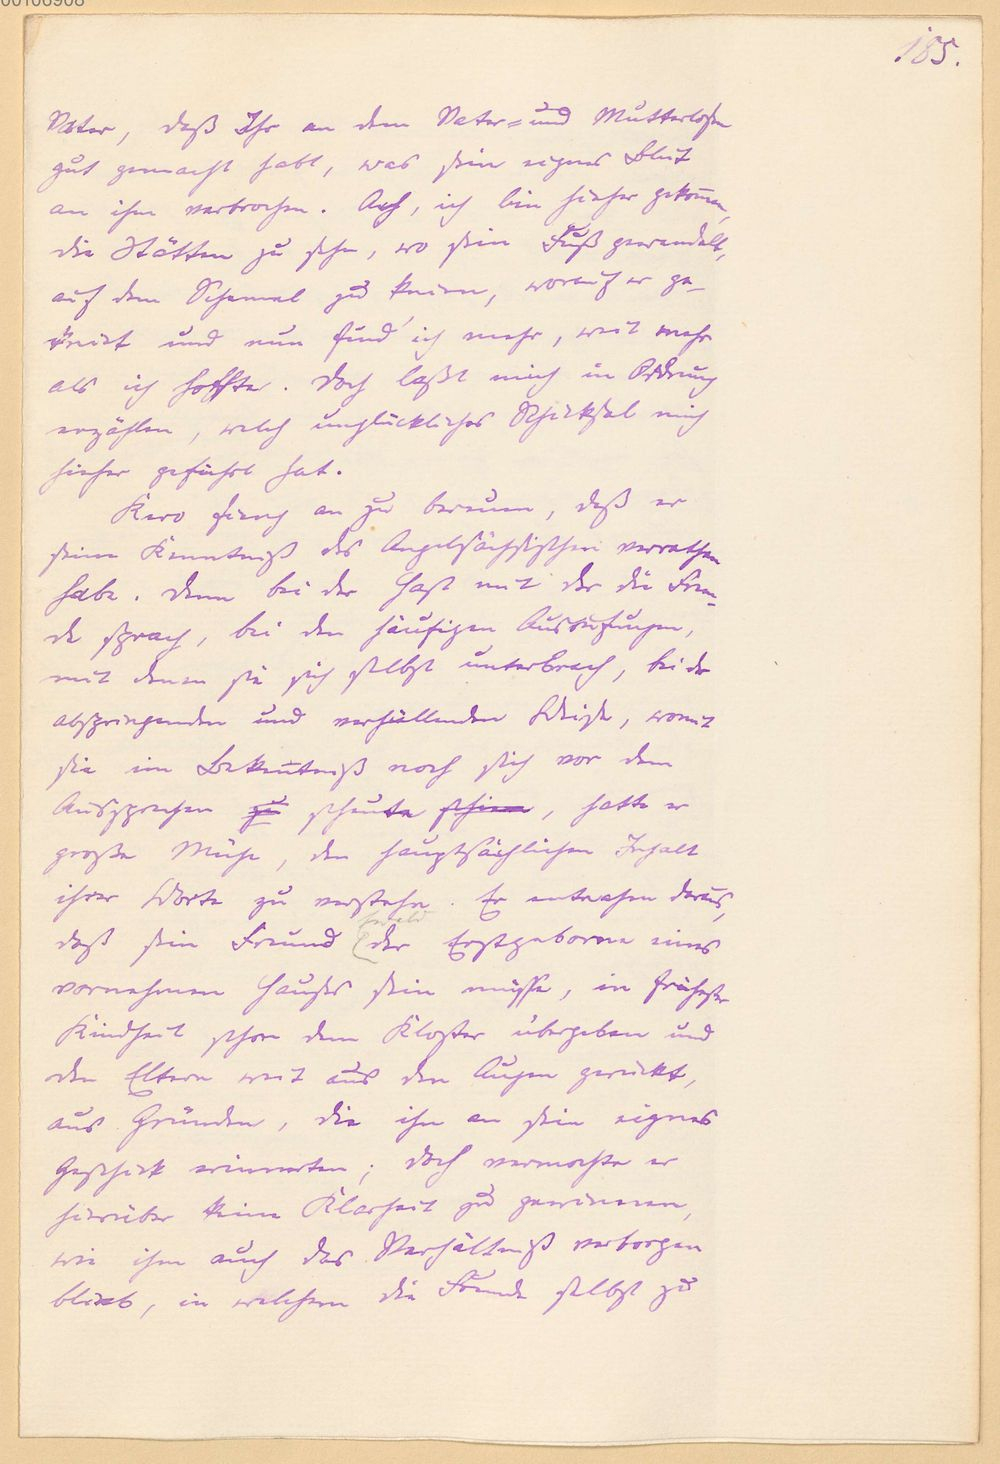 185.
Vater, daß Ihr an dem Vater- und Mutterlosen
gut gemacht habt, was sein eignes Blut
an ihm verbrochen. Ach, ich bin hieher gekom̄en,
die Stätten zu sehn, wo sein Fuß gewandelt,
auf dem Schemel zu knien, worauf er ge-
kniet und nun find' ich mehr, weit mehr
als ich hoffte. Doch laßt mich in Ordnung
erzählen, welch unglückliches Schicksal mich
hieher geführt hat.
Kero fieng an zu bereuen, daß er
seine Kenntniß des Angelsächsischen verrathen
habe. Denn bei der Hast mit der die Frem-
de sprach, bei den häufigen Ausrufungen,
mit denen sie sich selbst unterbrach, bei der
abspringenden und verhüllenden Weise, womit
sie im Bekentniß noch sich vor dem
Aussprechen zu scheute schien, hatte er
große Mühe, den hauptsächlichen Inhalt
ihrer Worte zu verstehn. Er entnahm daraus,
daß sein Freund der Erstgeborne eines
vornehmen Hauses sein müsse, in frühester
Kindheit schon dem Kloster übergeben und
den Eltern weit aus den Augen gerückt,
aus Gründen, die ihn an sein eignes
Geschick erinnerten; doch vermochte er
hierüber keine Klarheit zu gewinnen,
wie ihm auch das Verhältniß verborgen
blieb, in welchem die Fremde selbst zu